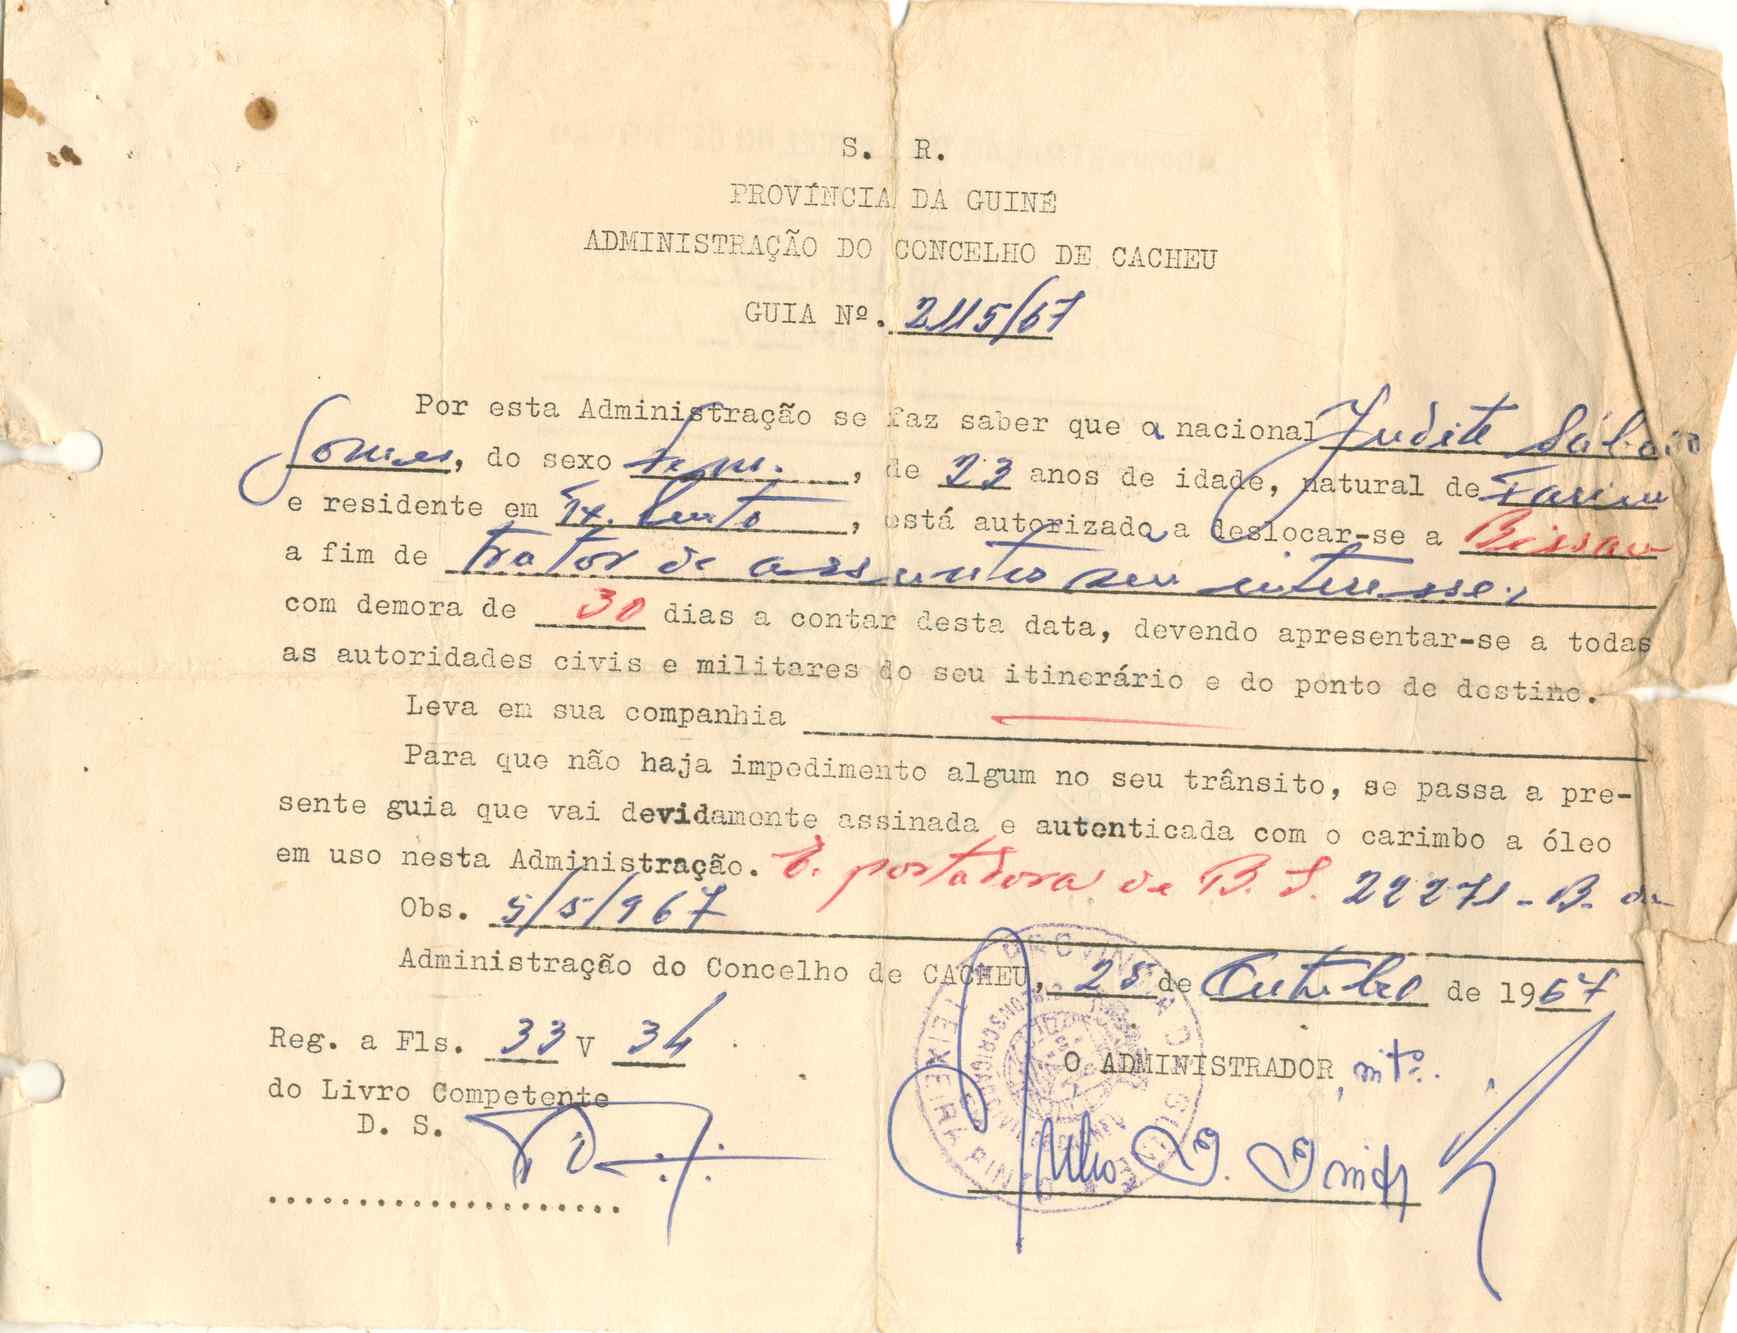 S. R.
PROVÍNCIA DA GUINÉ
ADMINISTRAÇÃO DO CONCELHO DE CACHEU
GUIA Nº. 2115/67
Por esta Administração se faz saber que a nacional Judite
Gomes, do sexo fem., de 23 anos de idade, natural de Farim
e residente em, está autorizada a deslocar-se a Bissau
a fim de tratar de assuntos seu interesse;
com demora de 30 dias a contar desta data, devendo apresentar-se a todas
as autoridades civis e militares do seu itinerário e do ponto de destino.
Leva em sua companhia
Para que não haja impedimento algum no seu trânsito, se passa a pre-
sente guia que vai devidamente assinada e autenticada com o carimbo a óleo
em uso nesta Administração. É portadora de B. I. 22271-B. de
Obs. 5/5/967
Administração do Concelho de CACHEU, 25 de Outubro de 1967
Reg. a Fls. 33 V 34
do Livro Competente
D. S.
O ADMINISTRADOR, intº.
PROVINCIA DA GUINÉ
TEIXEIRA PINTO